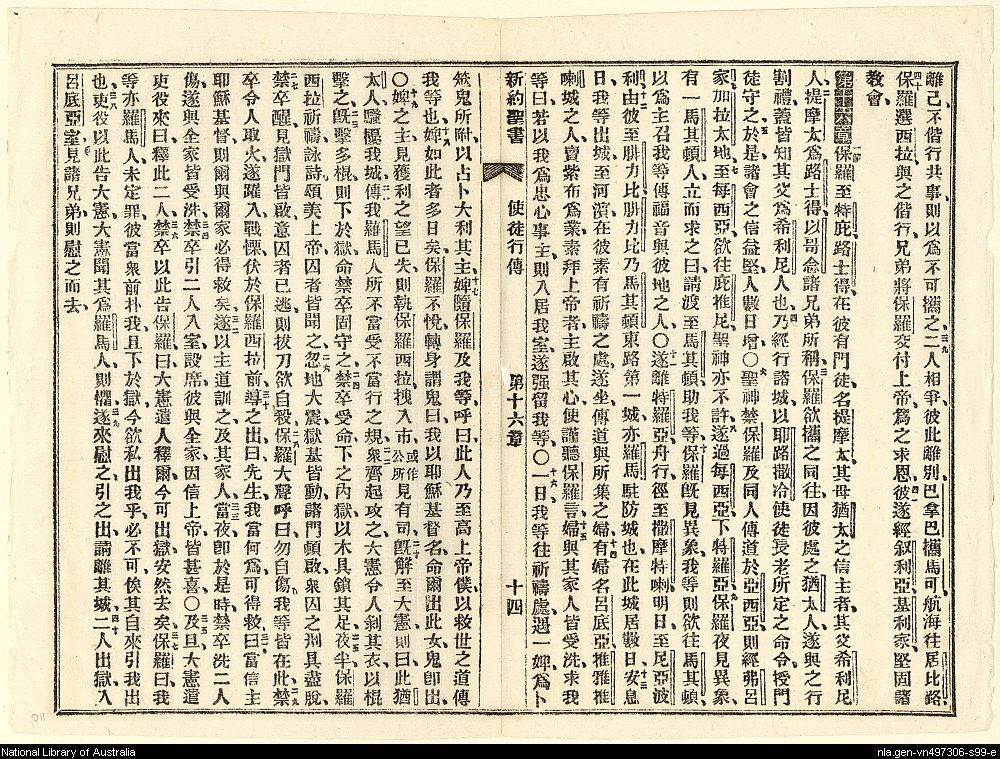 離己、不偕行共事、則以爲不可攜之、二人相爭、彼此離別、巴拿巴攜馬可、航海往居比路、
保羅選西拉與之偕行、兄弟將保羅交付上帝、爲之求恩、彼遂經叙利亞基利家、堅固諸
教會、
第十六章 保羅至特庇路士得、在彼有門徒、名提摩太、其母猶太之信主者、其父希利尼
人、提摩太爲路士得以哥念諸兄弟所稱、保羅欲攜之同往、因彼處之猶太人、遂與之行
割禮、蓋皆知其父爲希利尼人也、乃經行諸城、以耶路撒冷使徒長老所定之命令、授門
徒守之、於是諸會之信益堅、人數日增、○聖神禁保羅及同人傳道於亞西亞、則經弗呂
家加拉太地、至每西亞、欲往庇推尼、聖神亦不許、遂過每西亞、下特羅亞、保羅夜見異象、
有一馬其頓人、立而求之曰、請渡至馬其頓助我等、保羅旣見異象、我等則欲往馬其頓、
以爲主召我等傳福音與彼地之人、○遂離特羅亞、舟行徑至撒摩特喇、明日至尼亞波
利、由彼至腓力比、腓力比乃馬其頓東路第一城、亦羅馬駐防城也、在此城居數日、安息
日、我等出城、至河濱、在彼素有祈禱之處、遂坐、傳道與所集之婦、有婦名呂底亞、推雅推
喇城之人、賣紫布爲業、素拜上帝者、主啟其心、使謹聽保羅言、婦與其家人皆受洗、求我
等曰、若以我爲忠心事主、則入居我室、遂强留我等、○一日我等往祈禱處、遇一婢、爲卜
新約聖書 使徒行傳 第十六章 十四
筮鬼所附、以占卜大利其主、婢隨保羅及我等、呼曰、此人乃至高上帝僕、以救世之道傳
我等也、婢如此者多日矣、保羅不悅、轉身謂鬼曰、我以耶穌基督名、命爾出此女、鬼卽出、
○婢之主、見獲利之望已失、則執保羅西拉、拽入市、或作公所見有司、旣解至大憲、則曰、此猶
太人、騷擾我城、傳我羅馬人所不當受不當行之規、衆齊起攻之、大憲令人剝其衣、以棍
擊之、旣擊多棍、則下於獄、命禁卒固守之、禁卒受命、下之內獄、以木具鎖其足、夜半保羅
西拉祈禱、詠詩頌美上帝、囚者皆聞之、忽地大震、獄基皆動、諸門頓啟、衆囚之刑具盡脫、
禁卒醒、見獄門皆啟、意囚者已逃、則拔刀欲自殺、保羅大聲呼曰、勿自傷、我等皆在此、禁
卒令人取火、遂躍入、戰慄伏於保羅西拉前、導之出曰、先生、我當何爲、可得救、曰、當信主
耶穌基督、則爾與爾家必得救矣、遂以主道訓之、及其家人、當夜卽於是時、禁卒洗二人
傷、遂與全家皆受洗、禁卒引二人入室設席、彼與全家、因信上帝皆甚喜、○及旦、大憲遣
吏役來曰、釋此二人、禁卒以此告保羅曰、大憲遣人釋爾、今可出獄、安然去矣、保羅曰、我
等亦羅馬人、未定罪、彼當衆前扑我、且下於獄、今欲私出我乎、必不可、俟其自來引我出
也、吏役以此告大憲、大憲聞其爲羅馬人、則懼、遂來慰之、引之出、請離其城、二人出獄、入
呂底亞室、見諸兄弟、則慰之而去、
National Library of Australia
nla.gen-vn497306-s99-e